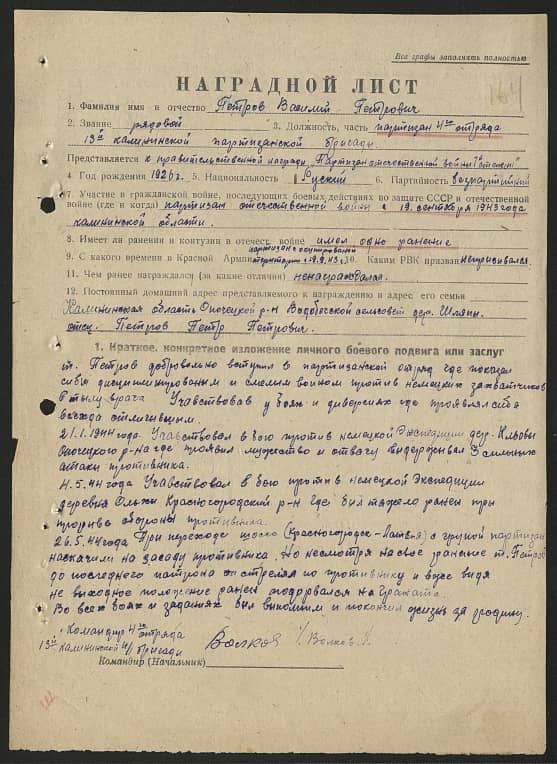 Все графы заполнять полностью
164
НАГРАДНОЙ ЛИСТ
1. Фамилия имя и отчество Петров Василий Петрович
2. Звание рядовой 3. Должность, часть партизан 4го отряда
13й калининской партизанской бригады
Представляется к правительственной награде „Партизан отечественной войны I степени"
4. Год рождения 1926г. 5. Национальность Руский 6. Партийность безпартийный
7. Участие в гражданской войне, последующих боевых действиях по защите СССР и отечественной
войне (где и когда) партизан отечественной войны с 19 сентября 1943 года
калининской области.
8. Имеет ли ранения и контузии в отечест. войне имел одно ранение
9. С какого времени в Красной Армии партизан с оккупированой территории с 19.9.43г. 10. Каким РВК призван непризывался.
11. Чем ранее награждался (за какие отличия) ненаграждался.
12. Постоянный домашний адрес представляемого к награждению и адрес его семьи
Калининская область Опочецкий р-н Водобегский сельсовет дер.
отец. Петров Петр Петрович.
1. Краткое, конкретное изложение личного боевого подвига или заслуг
т. Петров добровольно вступил в партизанский отряд где показал
себя дисциплинированым и смелым воином против немецких захватчиков
в тылу врага Учавствовал у боях и диверсиях где проявлял себя
всегда отличившим.
21.1.1944 года. Учавствовал в бою против немецкой Экспедиции дер.
Опочецкого р-на где проявил мужество и отвагу выдерживал 3 сильных
атаки противника.
4.5.44 года Учавствовал в бою против немецкой Экспедиции
деревня Ольхи Красногородский р-н где был тяжело ранен при
прорыве обороны противника.
26.5.44 года При переходе шоссе (Красногородск-Латвия) с групой партизан
наскачили на засаду противника. Но несмотря на свое ранение т. Петров
до последнего патрона отстрелял по противнику и уже видя
не выходное положение ранен подорвался на гранате.
Во всех боях и заданиях был и покончил жизнь за родину.
Командир 4го отряда
13й Калининской п/бригады Волков /Волков
Командир (Начальник)